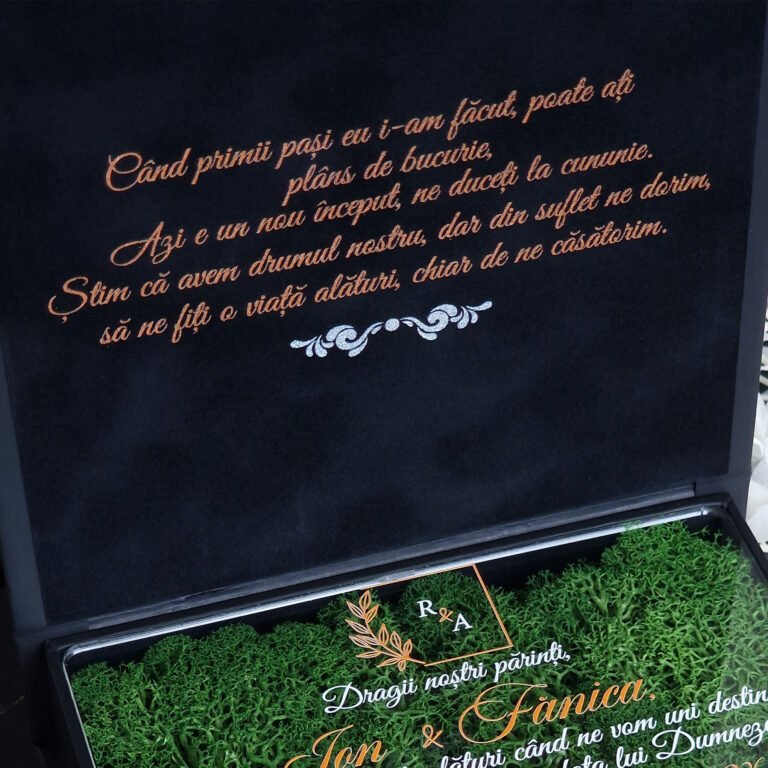 Când primii pași eu i-am făcut, poate ați
plâns de bucurie,
Azi e un nou început, ne duceți la cununie.
Știm că avem drumul nostru, dar din suflet ne dorim,
să ne fiți o viață alături, chiar de ne căsătorim.
R & A
Dragii noștri părinți,
Ion & Fànica,
alături când ne vom uni destin
lui Dumneze